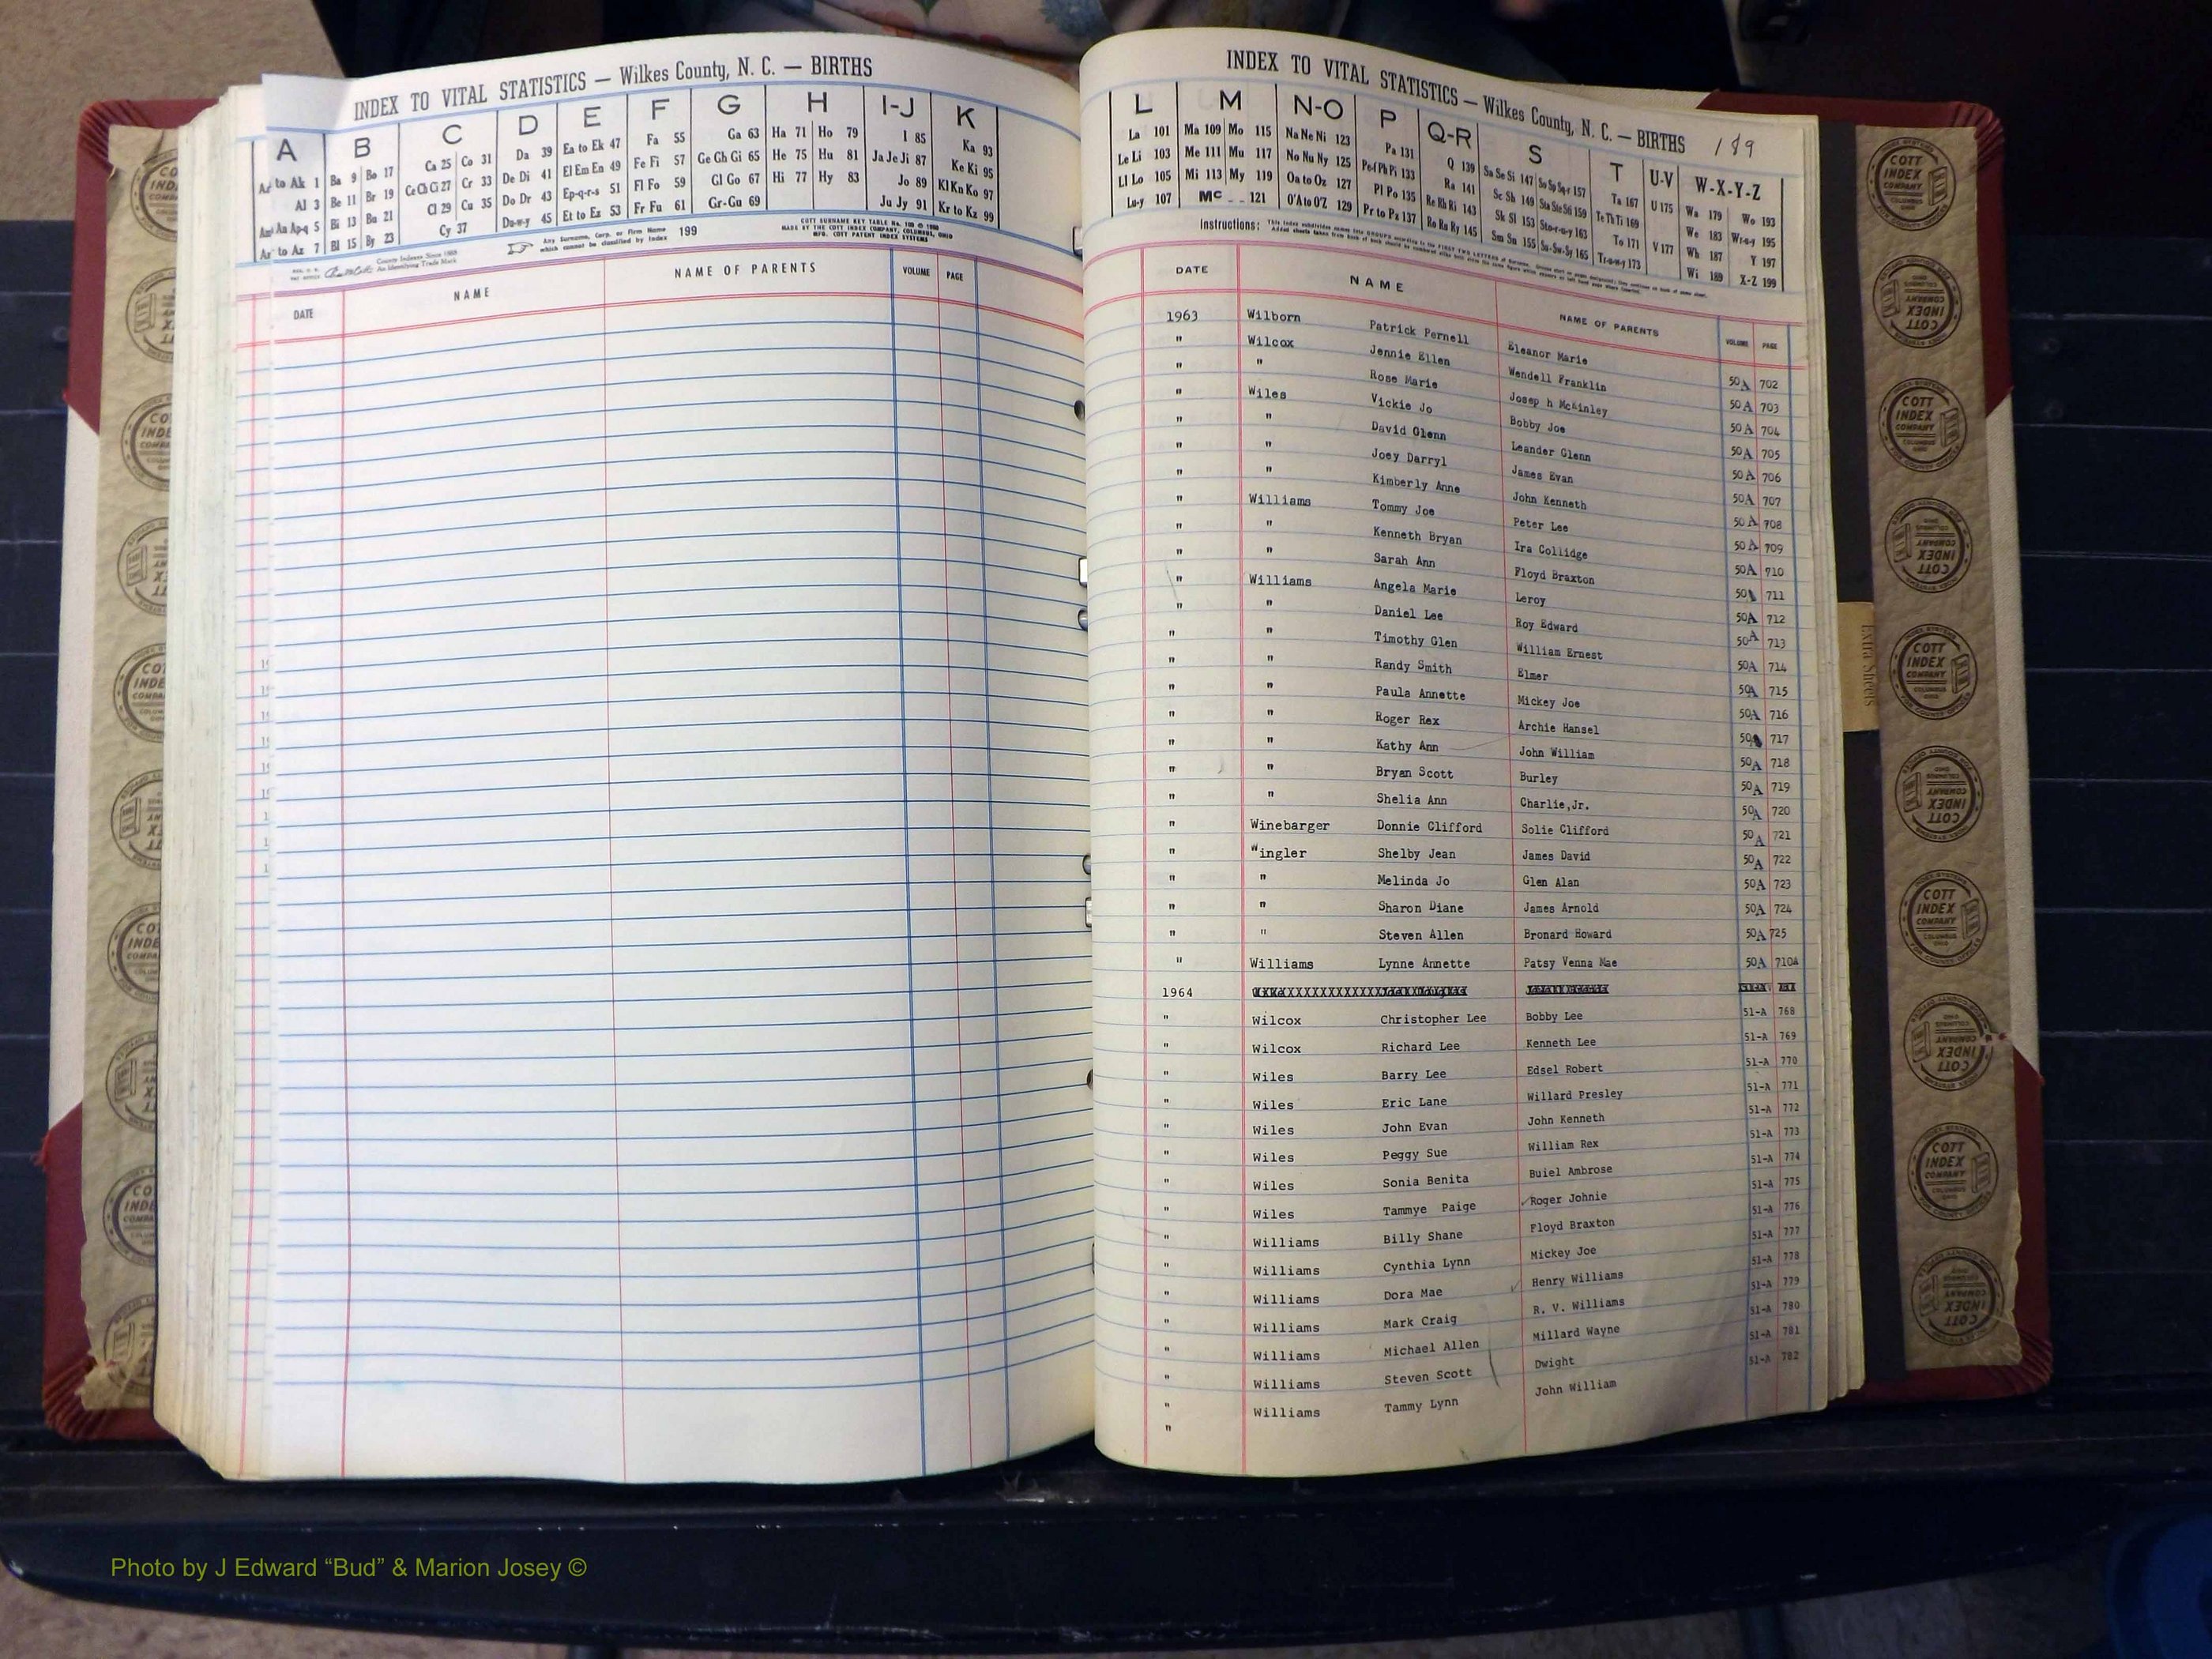 INDEX TO VITAL STATISTICS — Wilkes County, N. C. — BIRTHS
A B C D E F G H I-J K
Aa to Ak 1 Ba 9 Bo 17 Ca 25 Co 31 Da 39 Ea to Ek 47 Fa 55 Ga 63 Ha 71 Ho 79 I 85 Ka 93
Al 3 Be 11 Br 19 Ce Ch Ci 27 Cr 33 De Di 41 El Em En 49 Fe Fi 57 Ge Gh Gi 65 He 75 Hu 81 Ja Je Ji 87 Ke Ki 95
Am An Ap-q 5 Bi 13 Bu 21 Cl 29 Cu 35 Do Dr 43 Ep-q-r-s 51 Fl Fo 59 Gl Go 67 Hi 77 Hy 83 Jo 89 Kl Kn Ko 97
Ar to Az 7 Bl 15 By 23 Cy 37 Du-w-y 45 Et to Ez 53 Fr Fu 61 Gr-Gu 69 Ju Jy 91 Kr to Kz 99
County Indexes Since 1888
An Identifying Trade Mark
Any Surname, Corp. or Firm Name which cannot be classified by Index 199
MADE BY THE COTT INDEX COMPANY, COLUMBUS, OHIO
MFG. COTT PATENT INDEX SYSTEMS
DATE NAME NAME OF PARENTS VOLUME PAGE
INDEX TO VITAL STATISTICS — Wilkes County, N. C. — BIRTHS 189
L M N-O P Q-R S T U-V W-X-Y-Z
La 101 Ma 109 Mo 115 Na Ne Ni 123 Pa 131 Q 139 Sa Se Si 147 So Sp Sq-r 157 Ta 167 U 175 Wa 179 Wo 193
Le Li 103 Me 111 Mu 117 No Nu Ny 125 Pe-f Ph Pi 133 Ra 141 Sc Sh 149 Sta Ste Sti 159 Te Th Ti 169 We 183 Wr-u-y 195
Ll Lo 105 Mi 113 My 119 Oa to Oz 127 Pl Po 135 Re Rh Ri 143 Sk Sl 153 Sto-r-u-y 163 To 171 V 177 Wh 187 Y 197
Lu-y 107 Mc 121 O'A to O'Z 129 Pr to Pz 137 Ro Ru Ry 145 Sm Sn 155 Su-Sw-Sy 165 Tr-u-w-y 173 Wi 189 X-Z 199
Instructions:
DATE NAME NAME OF PARENTS VOLUME PAGE
1963 Wilborn Patrick Pernell Eleanor Marie 50A 702
" Wilcox Jennie Ellen Wendell Franklin 50A 703
" " Rose Marie Josep h McKinley 50A 704
" Wiles Vickie Jo Bobby Joe 50A 705
" " David Glenn Leander Glenn 50A 706
" " Joey Darryl James Evan 50A 707
" " Kimberly Anne John Kenneth 50A 708
" Williams Tommy Joe Peter Lee 50A 709
" " Kenneth Bryan Ira Collidge 50A 710
" " Sarah Ann Floyd Braxton 50A 711
" Williams Angela Marie Leroy 50A 712
" " Daniel Lee Roy Edward 50A 713
" " Timothy Glen William Ernest 50A 714
" " Randy Smith Elmer 50A 715
" " Paula Annette Mickey Joe 50A 716
" " Roger Rex Archie Hansel 50A 717
" " Kathy Ann John William 50A 718
" " Bryan Scott Burley 50A 719
" " Shelia Ann Charlie,Jr. 50A 720
" Winebarger Donnie Clifford Solie Clifford 50A 721
" "ingler Shelby Jean James David 50A 722
" " Melinda Jo Glen Alan 50A 723
" " Sharon Diane James Arnold 50A 724
" " Steven Allen Bronard Howard 50A 725
" Williams Lynne Annette Patsy Venna Mae 50A 710A
1964
" Wilcox Christopher Lee Bobby Lee 51-A 768
" Wilcox Richard Lee Kenneth Lee 51-A 769
" Wiles Barry Lee Edsel Robert 51-A 770
" Wiles Eric Lane Willard Presley 51-A 771
" Wiles John Evan John Kenneth 51-A 772
" Wiles Peggy Sue William Rex 51-A 773
" Wiles Sonia Benita Buiel Ambrose 51-A 774
" Wiles Tammye Paige Roger Johnie 51-A 775
" Williams Billy Shane Floyd Braxton 51-A 776
" Williams Cynthia Lynn Mickey Joe 51-A 777
" Williams Dora Mae Henry Williams 51-A 778
" Williams Mark Craig R. V. Williams 51-A 779
" Williams Michael Allen Millard Wayne 51-A 780
" Williams Steven Scott Dwight 51-A 781
" Williams Tammy Lynn John William 51-A 782
"
Extra Sheets
COTT INDEX COMPANY COLUMBUS OHIO
Photo by J Edward “Bud” & Marion Josey ©